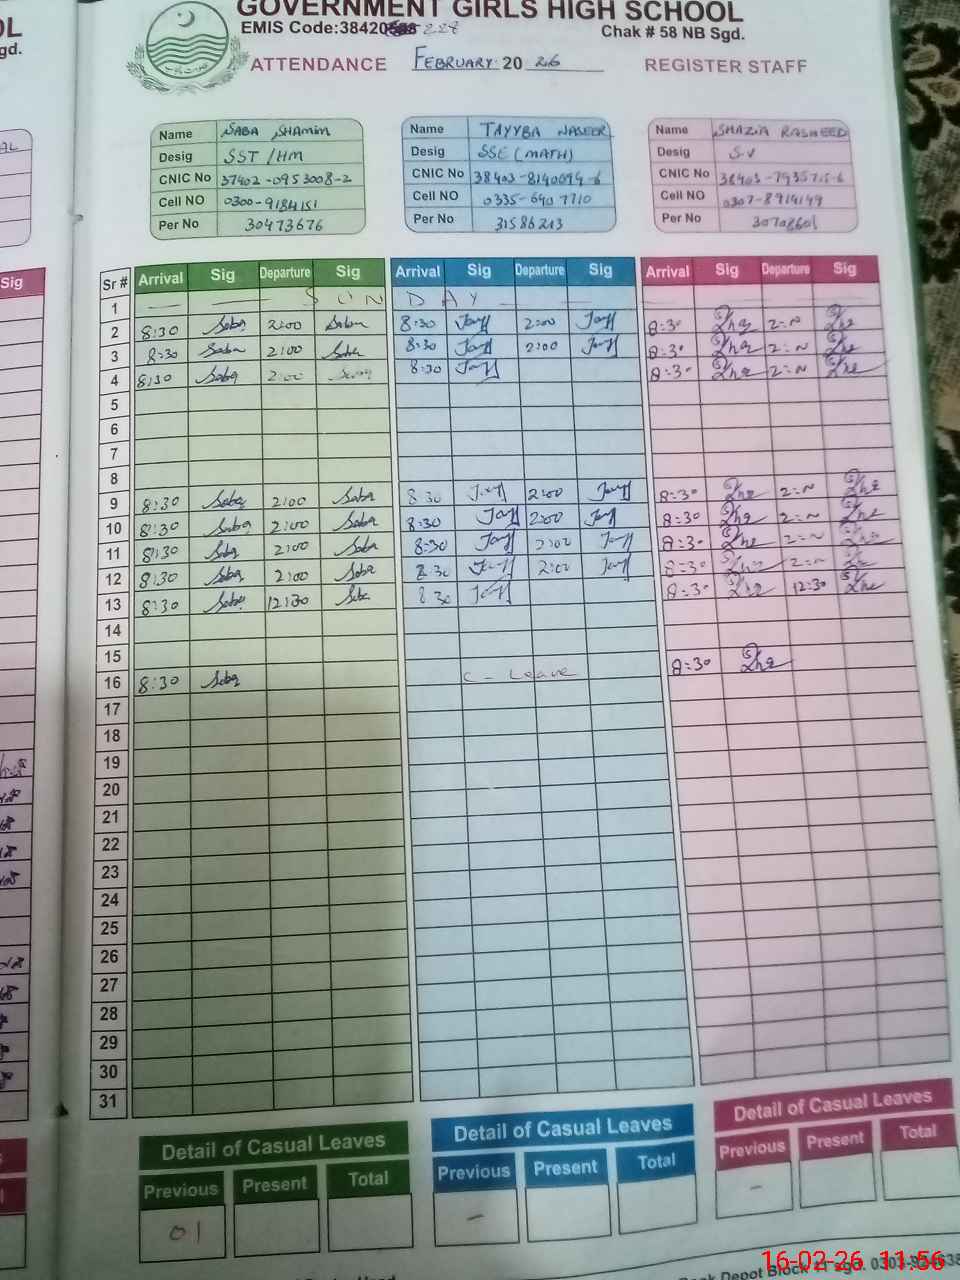 GOVERNMENT GIRLS HIGH SCHOOL
EMIS Code:38420 228
Chak # 58 NB Sgd.
ATTENDANCE FEBRUARY 2026 REGISTER STAFF
Name SABA SHAMIM
Desig SST/HM
CNIC No 37402-0953008-2
Cell NO 0300-9184151
Per No 30473676
Name TAYYBA NASEER
Desig SSE (MATH)
CNIC No 38403-8140694-6
Cell NO 0335-6907710
Per No 31586213
Name SHAZIA RASHEED
Desig S.V
CNIC No 38403-7935715-6
Cell NO 0307-8914149
Per No 30708601
Sr # Arrival Sig Departure Sig Arrival Sig Departure Sig Arrival Sig Departure Sig
1 SUNDAY
2 8:30 Saba 2:00 Saba 8:30 2:00 8:30
3 8:30 Saba 2:00 Saba 8:30 2:00 8:30
4 8:30 Saba 2:00 Saba 8:30 8:30
5
6
7
8
9 8:30 Saba 2:00 Saba 8:30 2:00 8:30
10 8:30 Saba 2:00 Saba 8:30 2:00 8:30
11 8:30 Saba 2:00 Saba 8:30 2:00 8:30
12 8:30 Saba 2:00 Saba 8:30 2:00 8:30
13 8:30 Saba 12:30 Saba 8:30 8:30 12:30
14
15
16 8:30 Saba C-Leave 8:30
17
18
19
20
21
22
23
24
25
26
27
28
29
30
31
Detail of Casual Leaves
Previous Present Total
01
Detail of Casual Leaves
Previous Present Total
-
Detail of Casual Leaves
Previous Present Total
-
16-02-26 11:56